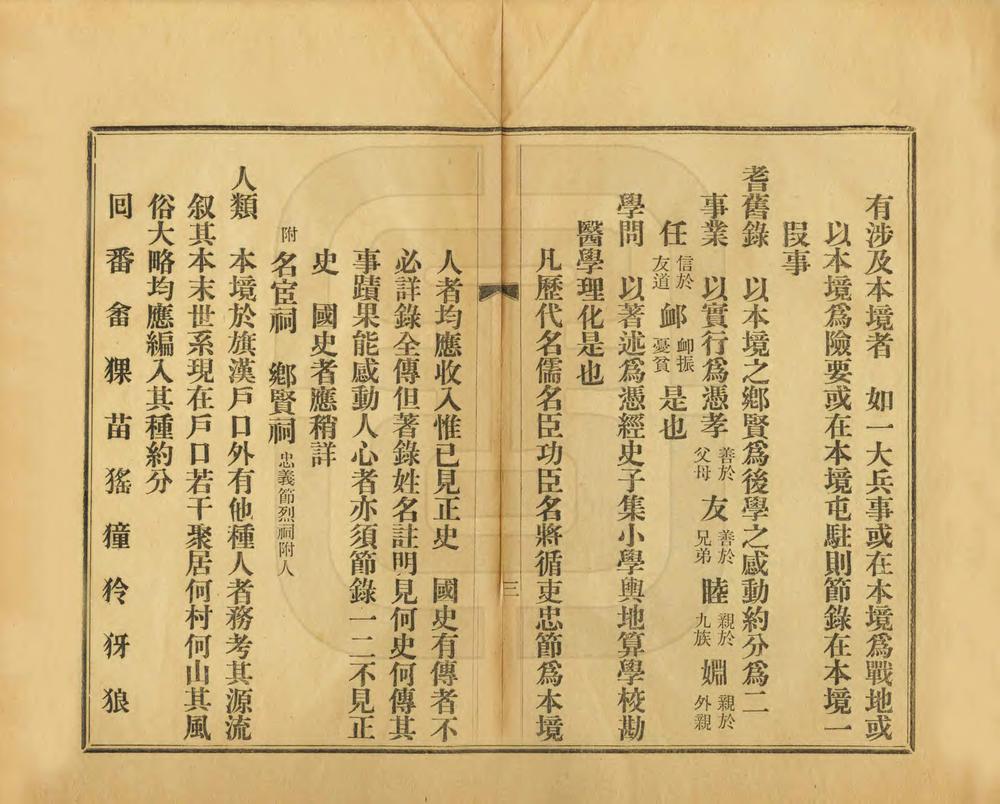 有涉及本境者　如一大兵事或在本境爲戰地或
以本境爲險要或在本境屯駐則節錄在本境一
段事
耆舊錄　以本境之鄉賢爲後學之感動約分爲二
事業　以實行爲憑孝善於父母友善於兄弟睦親於九族婣親於外親
任信於友道卹卹振憂貧是也
學問　以著述爲憑經史子集小學輿地算學校勘
醫學理化是也
凡歷代名儒名臣功臣名將循吏忠節爲本境
三
人者均應收入惟已見正史　國史有傳者不
必詳錄全傳但著錄姓名註明見何史何傳其
事蹟果能感動人心者亦須節錄一二不見正
史　國史者應稍詳
附名宦祠　鄉賢祠忠義節烈祠附入
人類　本境於旗漢戶口外有他種人者務考其源流
叙其本末世系現在戶口若干聚居何村何山其風
俗大略均應編入其種約分
回　番　畬　猓　苗　猺　獞　狑　犽　狼